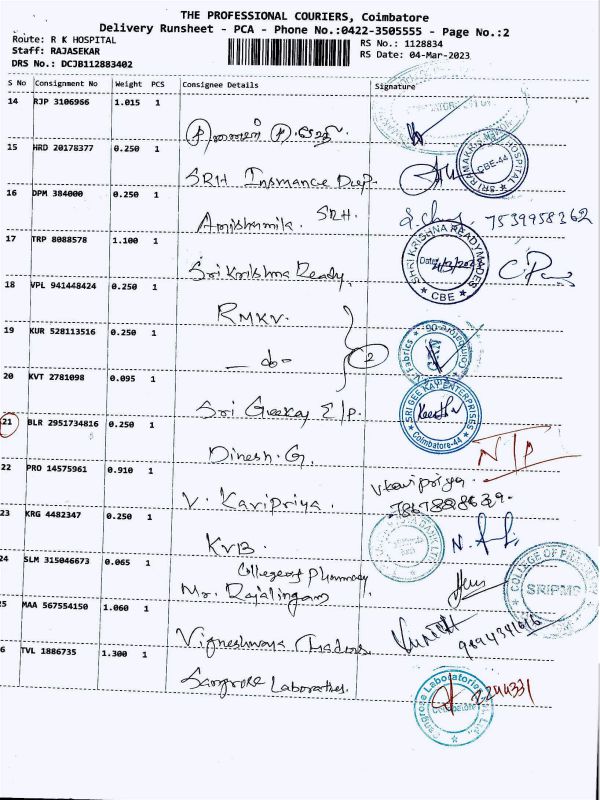 THE PROFESSIONAL COURIERS, Coimbatore
Delivery Runsheet - PCA - Phone No.:0422-3505555 - Page No.:2
Route: R K HOSPITAL
Staff: RAJASEKAR
DRS No.: DCJB112883402
RS No.: 1128834
RS Date: 04-Mar-2023
S No Consignment No Weight PCS Consignee Details Signature
14 RJP 3106966 1.015 1
15 HRD 20178377 0.250 1 SRH Insurance Dep.
SRI RAMAKRISHNA HOSPITAL CBE-44
16 DPM 384000 0.250 1 SRH.
7539958362
17 TRP 8088578 1.100 1 Sri Krishna Ready.
SHRI KRISHNA READYMADES Date: 4/3/202 CBE
18 VPL 941448424 0.250 1 RMKV.
19 KUR 528113516 0.250 1 — do — 2
Fabrics Coimbatore
20 KVT 2781098 0.095 1 Sri Geekay E/P.
SRI GEE KAY ENTERPRISES Coimbatore-44
21 BLR 2951734816 0.250 1 Dinesh.G.
N/P
22 PRO 14575961 0.910 1 V. Kavipriya.
V kavipriya.
23 KRG 4482347 0.250 1 KVB
24 SLM 315046673 0.065 1 College of Pharmacy
Mr. Rajalingam
COLLEGE OF PHARMACY SRIPMS
25 MAA 567554150 1.060 1 Vigneshwara Traders.
26 TVL 1886735 1.300 1 Sangrose Laboratries.
Sangrose Laboratories Ltd.
2244331